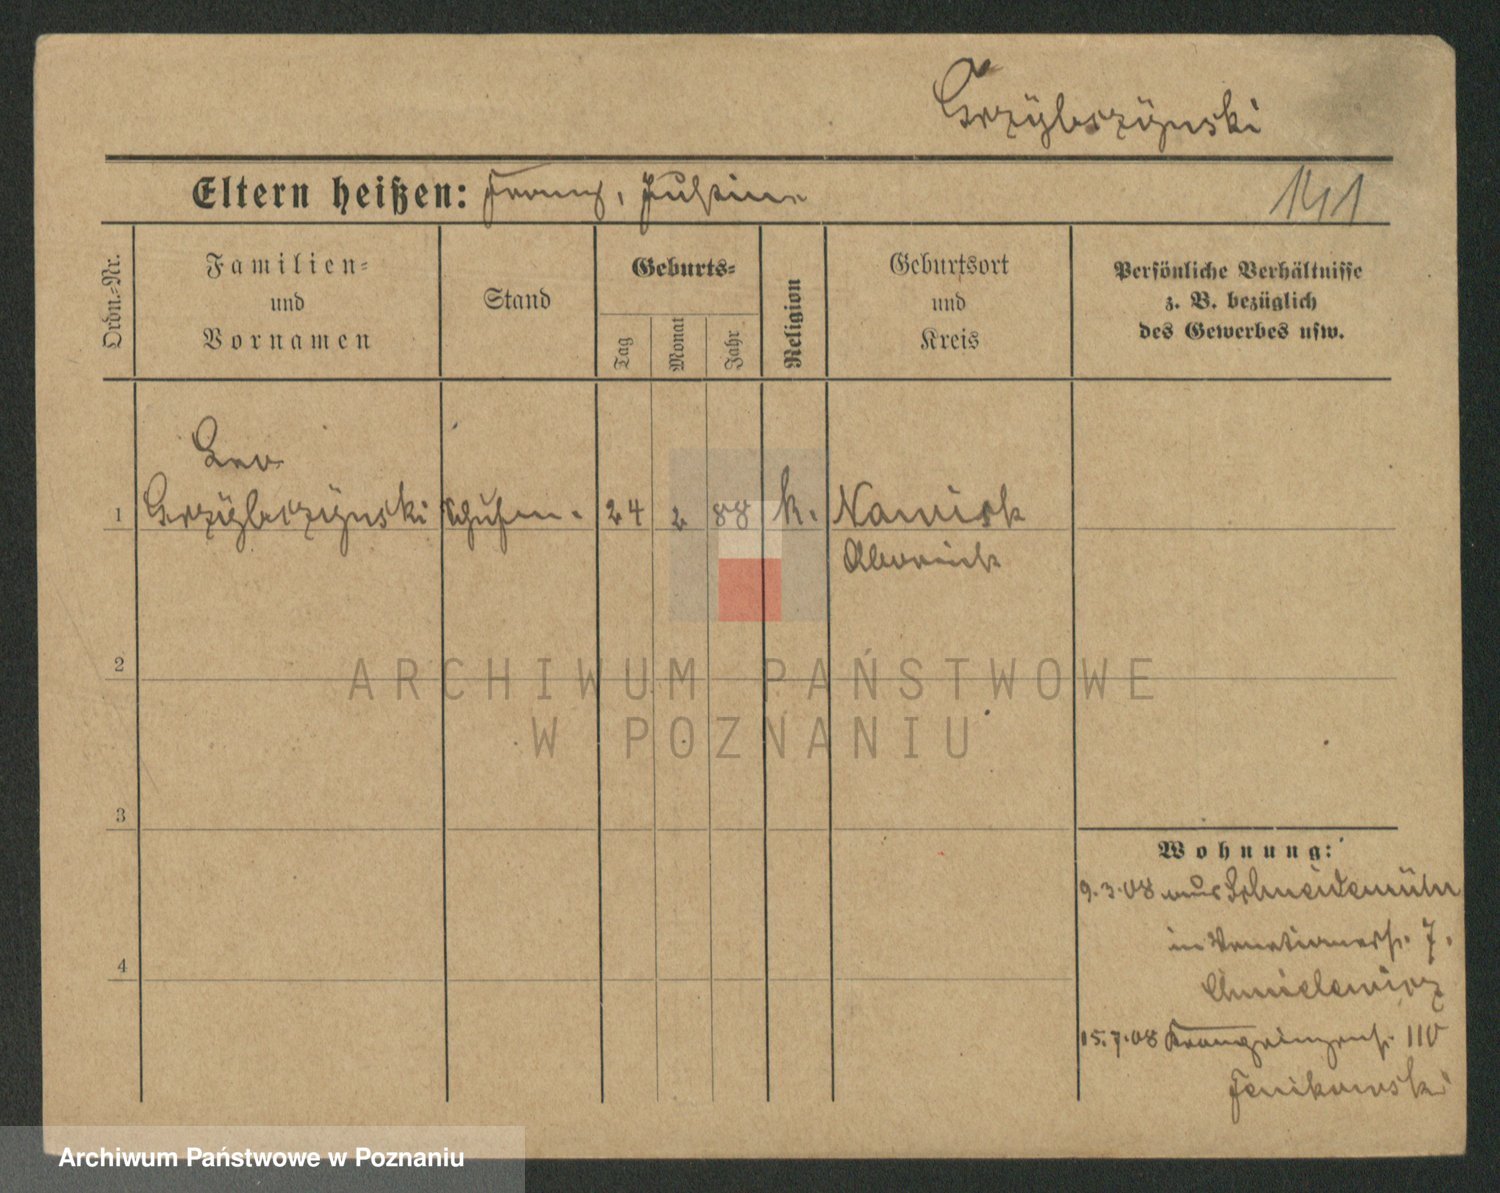 Grzybszynski
Eltern heißen: Franz, Justine
141
Ordn.=Nr.
Familien=
und
Vornamen
Stand
Geburts=
Tag
Monat
Jahr
Religion
Geburtsort
und
Kreis
Persönliche Verhältnisse
z. B. bezüglich
des Gewerbes usw.
Leo
1 Grzybszynski 24 2 88 k.
2
3
4
Wohnung:
9.3.08 aus Schneidemühl
in Venetianerstr. 7.
Chmielewicz
15.7.08 Kronprinzenstr.
Fenikowski
ARCHIWUM PAŃSTWOWE
W POZNANIU
Archiwum Państwowe w Poznaniu